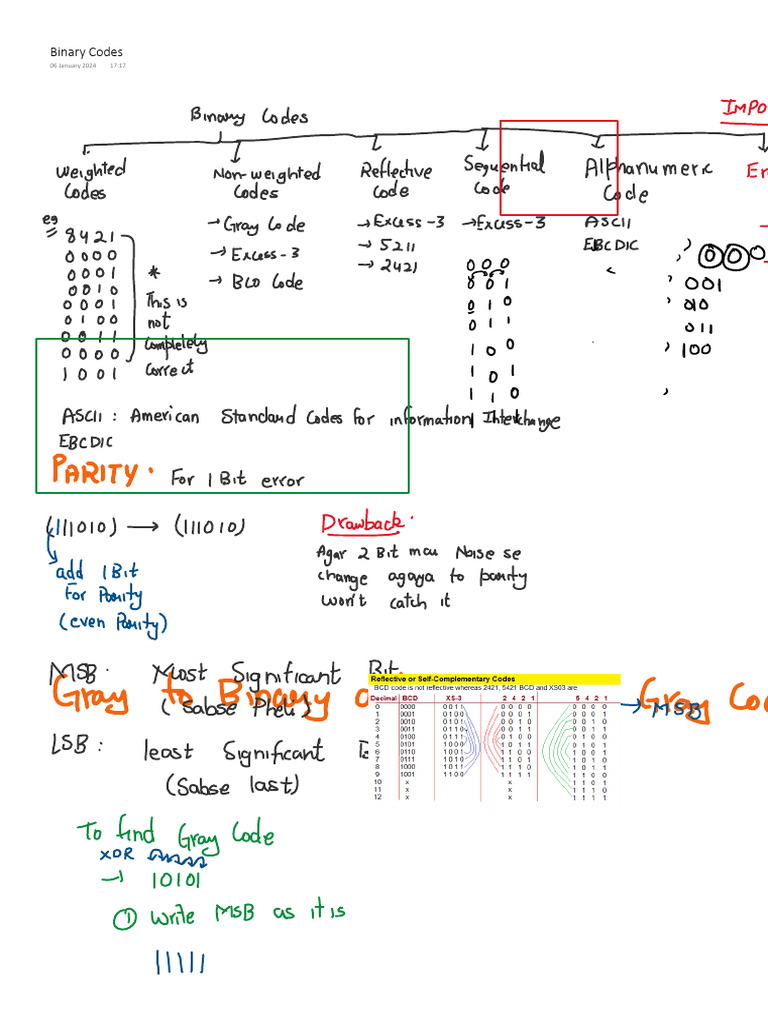 Binary Codes
06 January 2024 17:17
Binary Codes
IMPO
Weighted Codes
Non-weighted Codes
Reflective Code
Sequential Code
Alphanumeric Code
Er
eg
8421
0000
0001
0010
0001
0100
0011
0000
1001
*
This is
not
completely
correct
→ Gray Code
→ Excess-3
→ BCD Code
→ Excess-3
→ 5211
→ 2421
→ Excess-3
000
001
010
011
100
101
110
ASCII
EBCDIC
000
001
010
011
100
ASCII : American Standard Codes for information Interchange
EBCDIC
PARITY. For 1 Bit error
(1111010) → (111010)
add 1 Bit
for Parity
(even Parity)
Drawback.
Agar 2 Bit mau Noise se
change agaya to parity
won't catch it
MSB. Most Significant Bit
(Sabse Pheli)
Gray to Binary
Gray Co
→ MSB
LSB : least Significant
(Sabse last)
Reflective or Self-Complementary Codes
BCD code is not reflective whereas 2421, 5421 BCD and XS03 are
Decimal BCD XS-3 2 4 2 1 5 4 2 1
0 0000 0 0 1 1 0 0 0 0 0 0 0 0
1 0001 0 1 0 0 0 0 0 1 0 0 0 1
2 0010 0 1 0 1 0 0 1 0 0 0 1 0
3 0011 0 1 1 0 0 0 1 1 0 0 1 1
4 0100 0 1 1 1 0 1 0 0 0 1 0 0
5 0101 1 0 0 0 1 0 1 1 1 0 0 0
6 0110 1 0 0 1 1 1 0 0 1 0 0 1
7 0111 1 0 1 0 1 1 0 1 1 0 1 0
8 1000 1 0 1 1 1 1 1 0 1 0 1 1
9 1001 1 1 0 0 1 1 1 1 1 1 0 0
10 x x
11 x x
12 x x
To find Gray Code
XOR
→ 10101
① write MSB as it is
11111